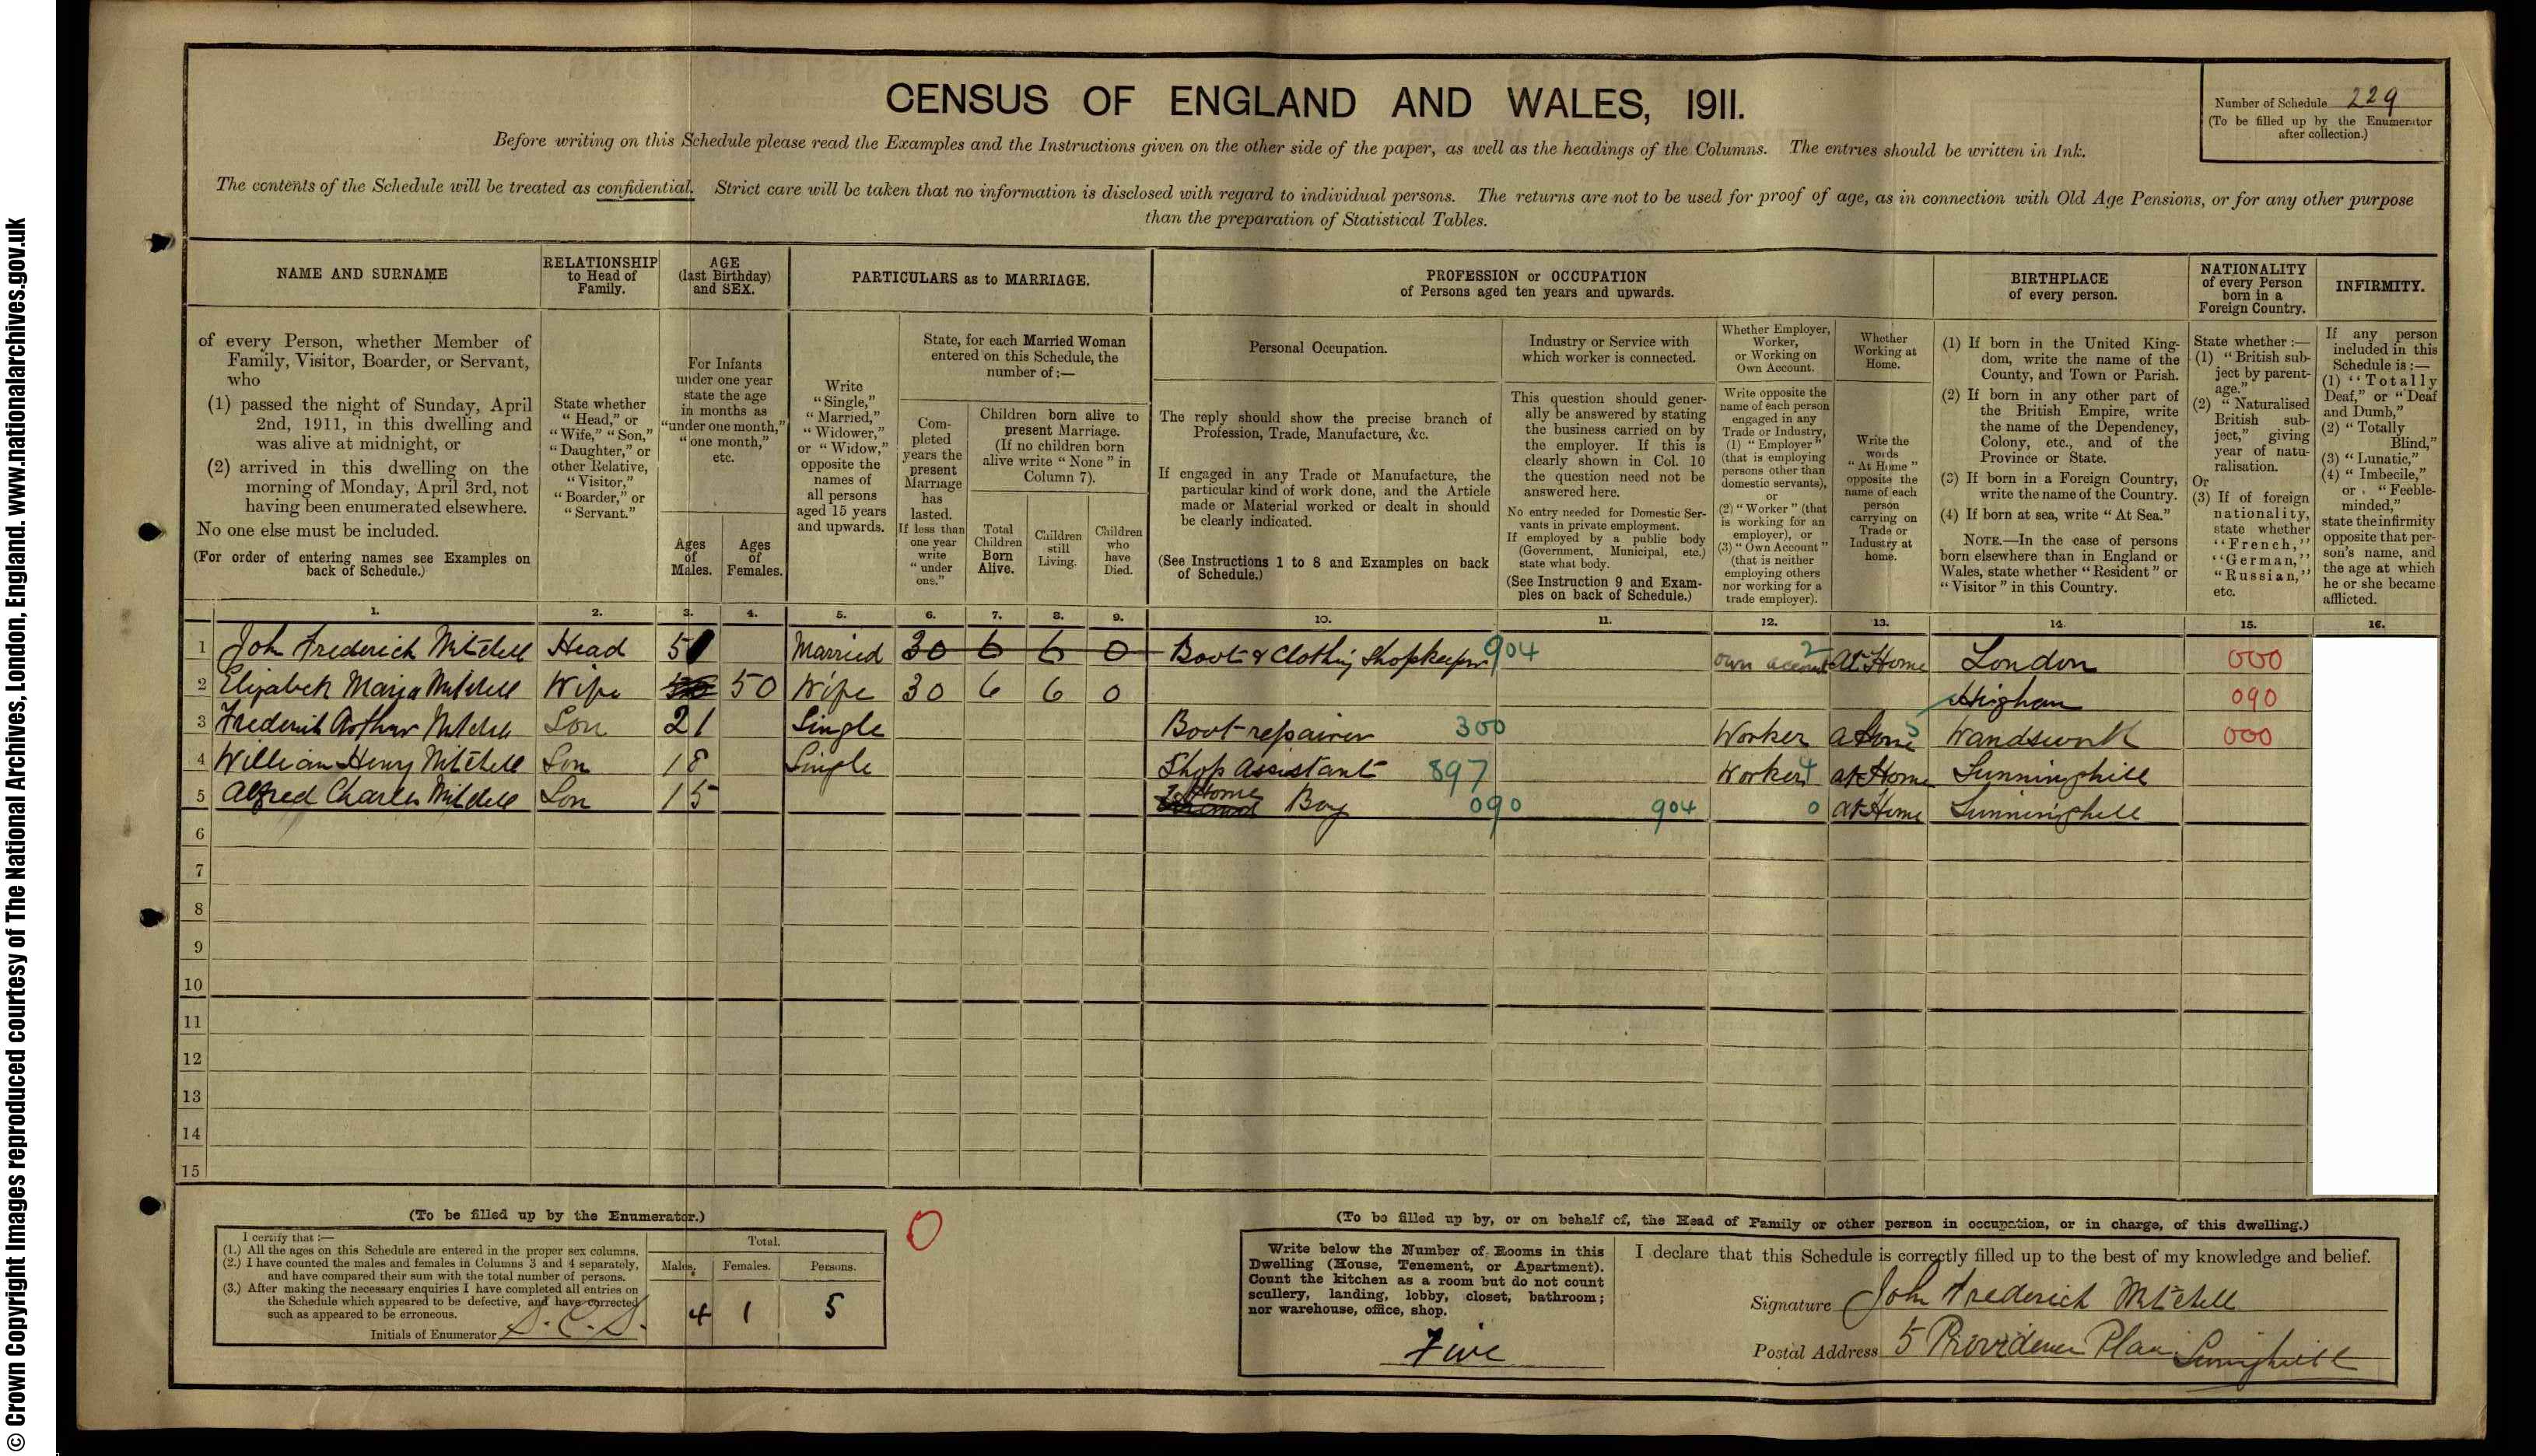 CENSUS OF ENGLAND AND WALES, 1911.
Number of Schedule 229
(To be filled up by the Enumerator after collection.)
Before writing on this Schedule please read the Examples and the Instructions given on the other side of the paper, as well as the headings of the Columns. The entries should be written in Ink.
The contents of the Schedule will be treated as confidential. Strict care will be taken that no information is disclosed with regard to individual persons. The returns are not to be used for proof of age, as in connection with Old Age Pensions, or for any other purpose
than the preparation of Statistical Tables.
NAME AND SURNAME
of every Person, whether Member of Family, Visitor, Boarder, or Servant, who
(1) passed the night of Sunday, April 2nd, 1911, in this dwelling and was alive at midnight, or
(2) arrived in this dwelling on the morning of Monday, April 3rd, not having been enumerated elsewhere.
No one else must be included.
(For order of entering names see Examples on back of Schedule.)
RELATIONSHIP to Head of Family.
State whether "Head," or "Wife," "Son," "Daughter," or other Relative, "Visitor," "Boarder," or "Servant."
AGE (last Birthday) and SEX.
For Infants under one year state the age in months as "under one month," "one month," etc.
Ages of Males.
Ages of Females.
PARTICULARS as to MARRIAGE.
Write "Single," "Married," "Widower," or "Widow," opposite the names of all persons aged 15 years and upwards.
State, for each Married Woman entered on this Schedule, the number of :—
Completed years the present Marriage has lasted. If less than one year write "under one."
Children born alive to present Marriage. (If no children born alive write "None" in Column 7).
Total Children Born Alive.
Children still Living.
Children who have Died.
PROFESSION or OCCUPATION of Persons aged ten years and upwards.
Personal Occupation.
The reply should show the precise branch of Profession, Trade, Manufacture, &c.
If engaged in any Trade or Manufacture, the particular kind of work done, and the Article made or Material worked or dealt in should be clearly indicated.
(See Instructions 1 to 8 and Examples on back of Schedule.)
Industry or Service with which worker is connected.
This question should generally be answered by stating the business carried on by the employer. If this is clearly shown in Col. 10 the question need not be answered here.
No entry needed for Domestic Servants in private employment.
If employed by a public body (Government, Municipal, etc.) state what body.
(See Instruction 9 and Examples on back of Schedule.)
Whether Employer, Worker, or Working on Own Account.
Write opposite the name of each person engaged in any Trade or Industry, (1) "Employer" (that is employing persons other than domestic servants), or (2) "Worker" (that is working for an employer), or (3) "Own Account" (that is neither employing others nor working for a trade employer).
Whether Working at Home.
Write the words "At Home" opposite the name of each person carrying on Trade or Industry at home.
BIRTHPLACE of every person.
(1) If born in the United Kingdom, write the name of the County, and Town or Parish.
(2) If born in any other part of the British Empire, write the name of the Dependency, Colony, etc., and of the Province or State.
(3) If born in a Foreign Country, write the name of the Country.
(4) If born at sea, write "At Sea."
NOTE.—In the case of persons born elsewhere than in England or Wales, state whether "Resident" or "Visitor" in this Country.
NATIONALITY of every Person born in a Foreign Country.
State whether :—
(1) "British subject by parentage."
(2) "Naturalised British subject," giving year of naturalisation.
Or
(3) If of foreign nationality, state whether "French," "German," "Russian," etc.
INFIRMITY.
If any person included in this Schedule is :—
(1) "Totally Deaf," or "Deaf and Dumb,"
(2) "Totally Blind,"
(3) "Lunatic,"
(4) "Imbecile," or "Feeble-minded,"
state the infirmity opposite that person's name, and the age at which he or she became afflicted.
1. 2. 3. 4. 5. 6. 7. 8. 9. 10. 11. 12. 13. 14. 15. 16.
1 John Frederick Mitchell Head 51 Married 30 6 6 0 Boot & Clothing Shopkeeper 904 own account 2 At Home London 000
2 Elizabeth Maria Mitchell Wife 50 Wife 30 6 6 0 Higham 090
3 Frederick Arthur Mitchell Son 21 Single Boot-repairer 300 Worker at Home Wandsworth 000
4 William Henry Mitchell Son 18 Single Shop Assistant 897 Worker 4 at Home Sunninghill
5 Alfred Charles Mitchell Son 15 Home Boy 090 904 0 At Home Sunninghill
6
7
8
9
10
11
12
13
14
15
(To be filled up by the Enumerator.)
I certify that :—
(1.) All the ages on this Schedule are entered in the proper sex columns.
(2.) I have counted the males and females in Columns 3 and 4 separately, and have compared their sum with the total number of persons.
(3.) After making the necessary enquiries I have completed all entries on the Schedule which appeared to be defective, and have corrected such as appeared to be erroneous.
Initials of Enumerator S.C.S.
Total.
Males. Females. Persons.
4 1 5
0
(To be filled up by, or on behalf of, the Head of Family or other person in occupation, or in charge, of this dwelling.)
Write below the Number of Rooms in this Dwelling (House, Tenement, or Apartment). Count the kitchen as a room but do not count scullery, landing, lobby, closet, bathroom; nor warehouse, office, shop.
Five
I declare that this Schedule is correctly filled up to the best of my knowledge and belief.
Signature John Frederick Mitchell
Postal Address 5 Providence Place Sunninghill
© Crown Copyright Images reproduced courtesy of The National Archives, London, England. www.nationalarchives.gov.uk